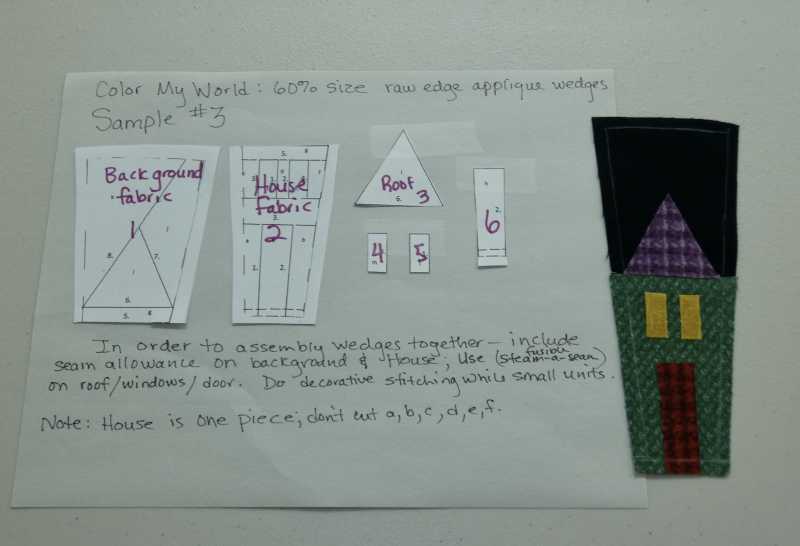 Color My World: 60% size raw edge applique wedges
Sample #3
Background
fabric
1
House
Fabric
2
Roof
3
4
5
6
In order to assembly wedges together - include
seam allowance on background & House; Use fusible (steam-a-seam)
on roof/windows/door. Do decorative stitching while small units.
Note: House is one piece; don't cut a, b, c, d, e, f.